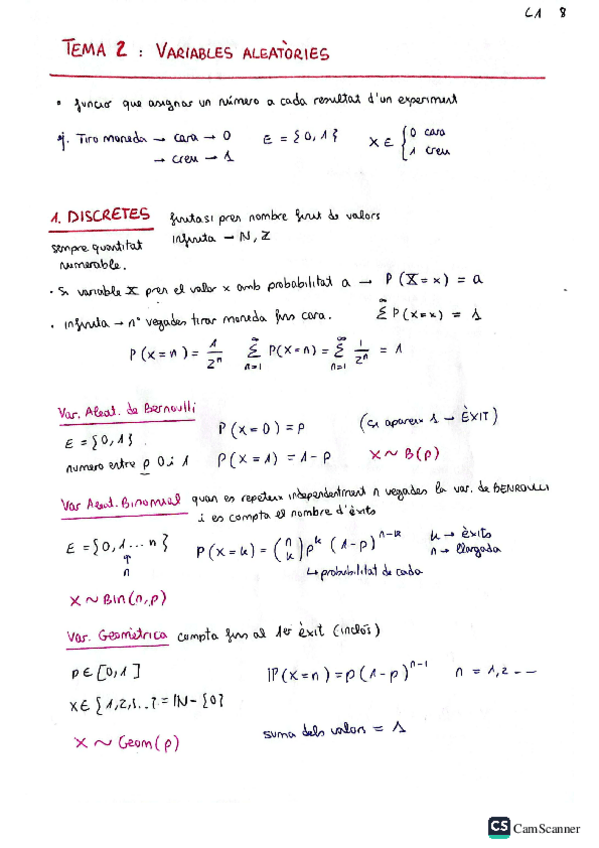 C1 8
TEMA 2 : VARIABLES ALEATÒRIES
• funció que asignar un número a cada resultat d'un experiment
ej. Tiro moneda → cara → 0 E = {0,1} X ∈ { 0 cara
→ creu → 1 1 creu
1. DISCRETES finitas i pren nombre finit de valors
sempre quantitat infinita – N, Z
numerable.
• Si variable X pren el valor x amb probabilitat a → P(X = x) = a
• infinita → nº vegades tirar moneda fins cara. ∑^∞ P(X=x) = 1
P(X=n) = 1/2^n ∑_{n=1}^∞ P(X=n) = ∑_{n=1}^∞ 1/2^n = 1
Var. Aleat. de Bernoulli P(X=0) = p (si apareix 1 → ÈXIT)
E = {0,1}.
numero entre p 0 i 1 P(X=1) = 1-p X ~ B(p)
Var Aleat. Binomial quan es repeteix independentment n vegades la var. de BENROULLI
i es compta el nombre d'èxits
E = {0,1... n} P(X=k) = (n k) p^k (1-p)^{n-k} k → èxits
↑ n → llargada
n ↳ probabilitat de cada
X ~ Bin(n,p)
Var. Geomètrica compta fins al 1er èxit (inclòs)
p ∈ [0,1] P(X=n) = p(1-p)^{n-1} n = 1,2 ---
X ∈ {1,2,3...} = N - {0}
suma dels valors = 1
X ~ Geom(p)
CS CamScanner